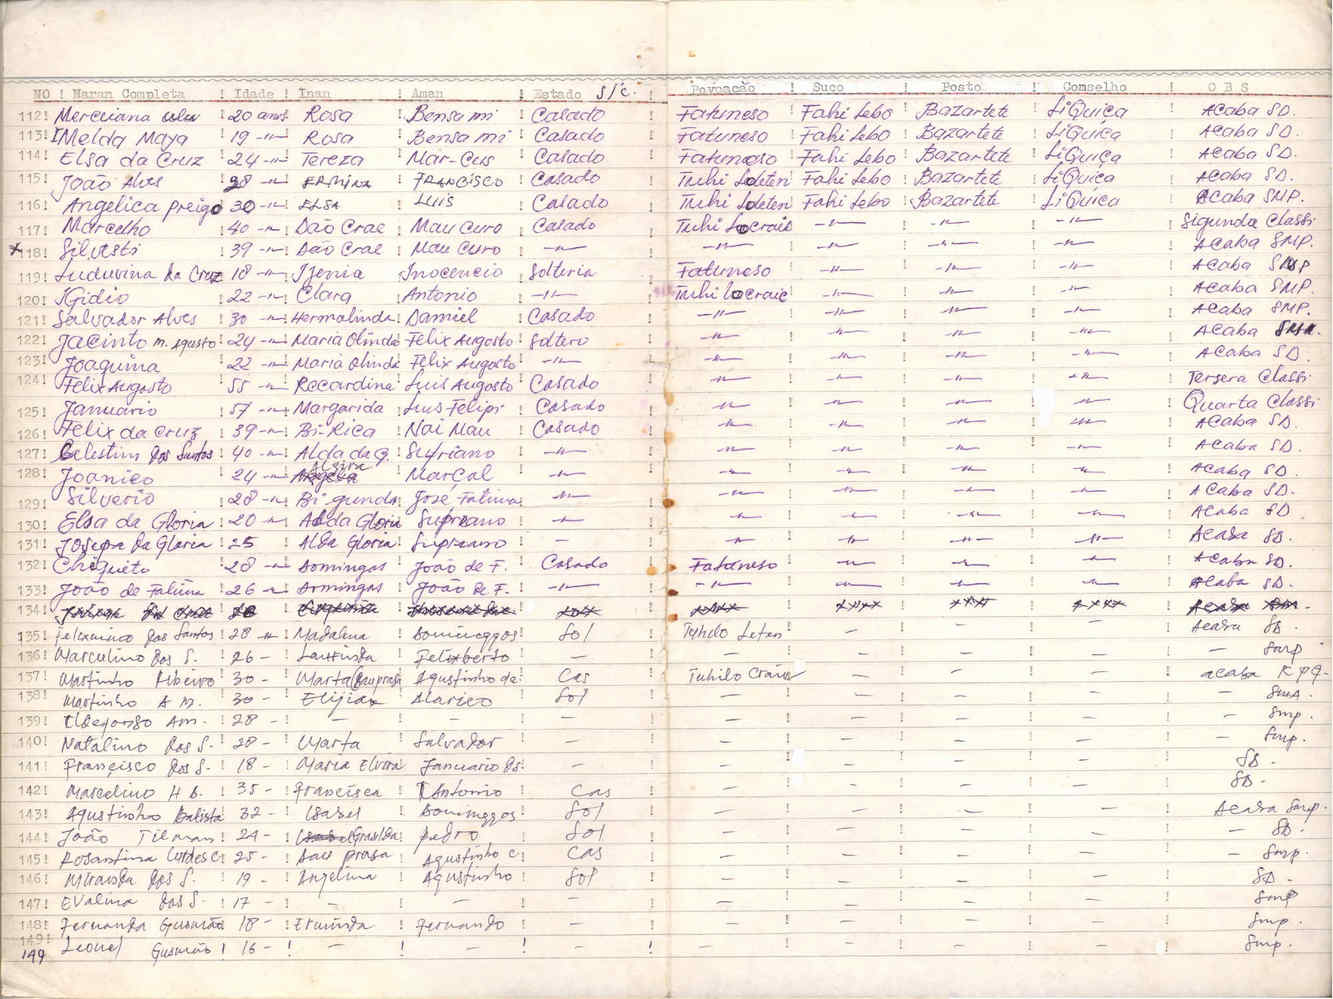 NO ! Naran Completa ! Idade ! Inan ! Aman ! Estado S/C. ! Povoação ! Suco ! Posto ! Comselho ! O B S
112! Merciana ! 20 anos ! Rosa ! Bensa mi ! Casado ! Fatuneso ! Fahi Lebo ! Bazartete ! LiQuica ! Acaba SD.
113! Imelda Maya ! 19 -"- ! Rosa ! Bensa mi ! Casado ! Fatuneso ! Fahi Lebo ! Bazartete ! LiQuica ! Acaba SD.
114! Elsa da Cruz ! 24 -"- ! Tereza ! Mar-Cus ! Casado ! Fatuneso ! Fahi Lebo ! Bazartete ! LiQuiça ! Acaba SD.
115! João Alves ! 28 -"- ! Ermina ! Francisco ! Casado ! Tuhi Loteten ! Fahi Lebo ! Bazartete ! LiQuica ! Acaba SD.
116! Angelica preigo ! 30 -"- ! Elsa ! Luis ! Casado ! Tuhi Loteten ! Fahi Lebo ! Bazartete ! LiQuica ! Acaba SMP.
117! Marcelho ! 40 -"- ! Dão Crae ! Mau Curo ! Casado ! Tuhi Locraic ! -"- ! -"- ! -"- ! Sigunda Classi
x 118! Silvesti ! 39 -"- ! Dão Crae ! Mau Curo ! -"- ! -"- ! -"- ! -"- ! -"- ! Acaba SMP.
119! Luduvina da Cruz ! 18 -"- ! Ijenia ! Inocencio ! Solteria ! Fatuneso ! -"- ! -"- ! -"- ! Acaba SMP
120! Igidio ! 22 -"- ! Clara ! Antonio ! -"- ! Tuhi locraic ! -"- ! -"- ! -"- ! Acaba SMP.
121! Salvador Alves ! 30 -"- ! Hermalinda ! Damiel ! Casado ! -"- ! -"- ! -"- ! -"- ! Acaba SMP.
122! Jacinto M. Agusto ! 24 -"- ! Maria Olinda ! Felix Augosto ! Soltero ! -"- ! -"- ! -"- ! -"- ! Acaba
123! Joaquina ! 22 -"- ! Maria Olinda ! Felix Augosto ! -"- ! -"- ! -"- ! -"- ! -"- ! Acaba SD.
124! Felix Augosto ! 55 -"- ! Reccardina ! Luis Augosto ! Casado ! -"- ! -"- ! -"- ! -"- ! Tersera Classi
125! Januario ! 57 -"- ! Margarida ! Luis Felipi ! Casado ! -"- ! -"- ! -"- ! -"- ! Quarta Classi
126! Felix da Cruz ! 39 -"- ! Bi-Rica ! Nai Mau ! Casado ! -"- ! -"- ! -"- ! -"- ! Acaba SD.
127! Celestim dos Santos ! 40 -"- ! Alda da G. ! Supriano ! -"- ! -"- ! -"- ! -"- ! -"- ! Acaba SD.
128! Joanico ! 24 -"- ! Alzira ! Marcal ! -"- ! -"- ! -"- ! -"- ! -"- ! Acaba SD.
129! Silverio ! 28 -"- ! Bi gunda ! José Fatima ! -"- ! -"- ! -"- ! -"- ! -"- ! Acaba SD.
130! Elsa da Gloria ! 20 -"- ! Alda Gloria ! Supreano ! -"- ! -"- ! -"- ! -"- ! -"- ! Acaba SD.
131! Josepra da Gloria ! 25 ! Alda Gloria ! Supreano ! - ! -"- ! -"- ! -"- ! -"- ! Acaba SD.
132! Chiquito ! 28 -"- ! Domingas ! João de F. ! Casado ! Fatuneso ! -"- ! -"- ! -"- ! Acaba SD.
133! João de Fatima ! 26 -"- ! Domingas ! João de F. ! -"- ! -"- ! -"- ! -"- ! -"- ! Acaba SD.
134!
135! dos Santos ! 28 -"- ! Madalena ! Dominggos ! Sol ! Tuhilo Leten ! - ! - ! - ! Acaba SD.
136! Marculino dos S. ! 26 - ! ! Felixberto ! - ! - ! - ! - ! - ! - Smp.
137! Martinho Ribeiro ! 30 - ! Marta ! Agustinho de ! Cas ! Tuhilo Craic ! - ! - ! - ! acaba
138! Martinho A M. ! 30 - ! Elijia ! Alarico ! Sol ! - ! - ! - ! - ! - Smp.
139! Ildefonso Am. ! 28 - ! - ! - ! - ! - ! - ! - ! - ! - Smp.
140! Natalino dos S. ! 28 - ! Marta ! Salvador ! - ! - ! - ! - ! - ! - Smp.
141! Françisco dos S. ! 18 - ! Maria Elvira ! Januario ds. ! - ! - ! - ! - ! - ! SD.
142! Marcelino H B. ! 35 - ! Francisca ! Antonio ! Cas ! - ! - ! - ! - ! SD.
143! Agustinho Batista ! 32 - ! Isabel ! Domingos ! Sol ! - ! - ! - ! - ! Acaba Smp.
144! João Tilman ! 24 - ! Grasilda ! Pedro ! Sol ! - ! - ! - ! - ! - SD.
145! Rosantina ! 25 - ! ! Agustinho C ! Cas ! - ! - ! - ! - ! - Smp.
146! Miranda dos S. ! 19 - ! Anjelina ! Agustinho ! Sol ! - ! - ! - ! - ! SD.
147! Evalina dos S. ! 17 - ! - ! - ! - ! - ! - ! - ! - ! - Smp
148! Fernanda Gusmão ! 18 - ! Erminda ! Fernando ! - ! - ! - ! - ! - ! Smp.
149! 149 Leonel Gusmão ! 16 - ! - ! - ! - ! - ! - ! - ! - ! Smp.